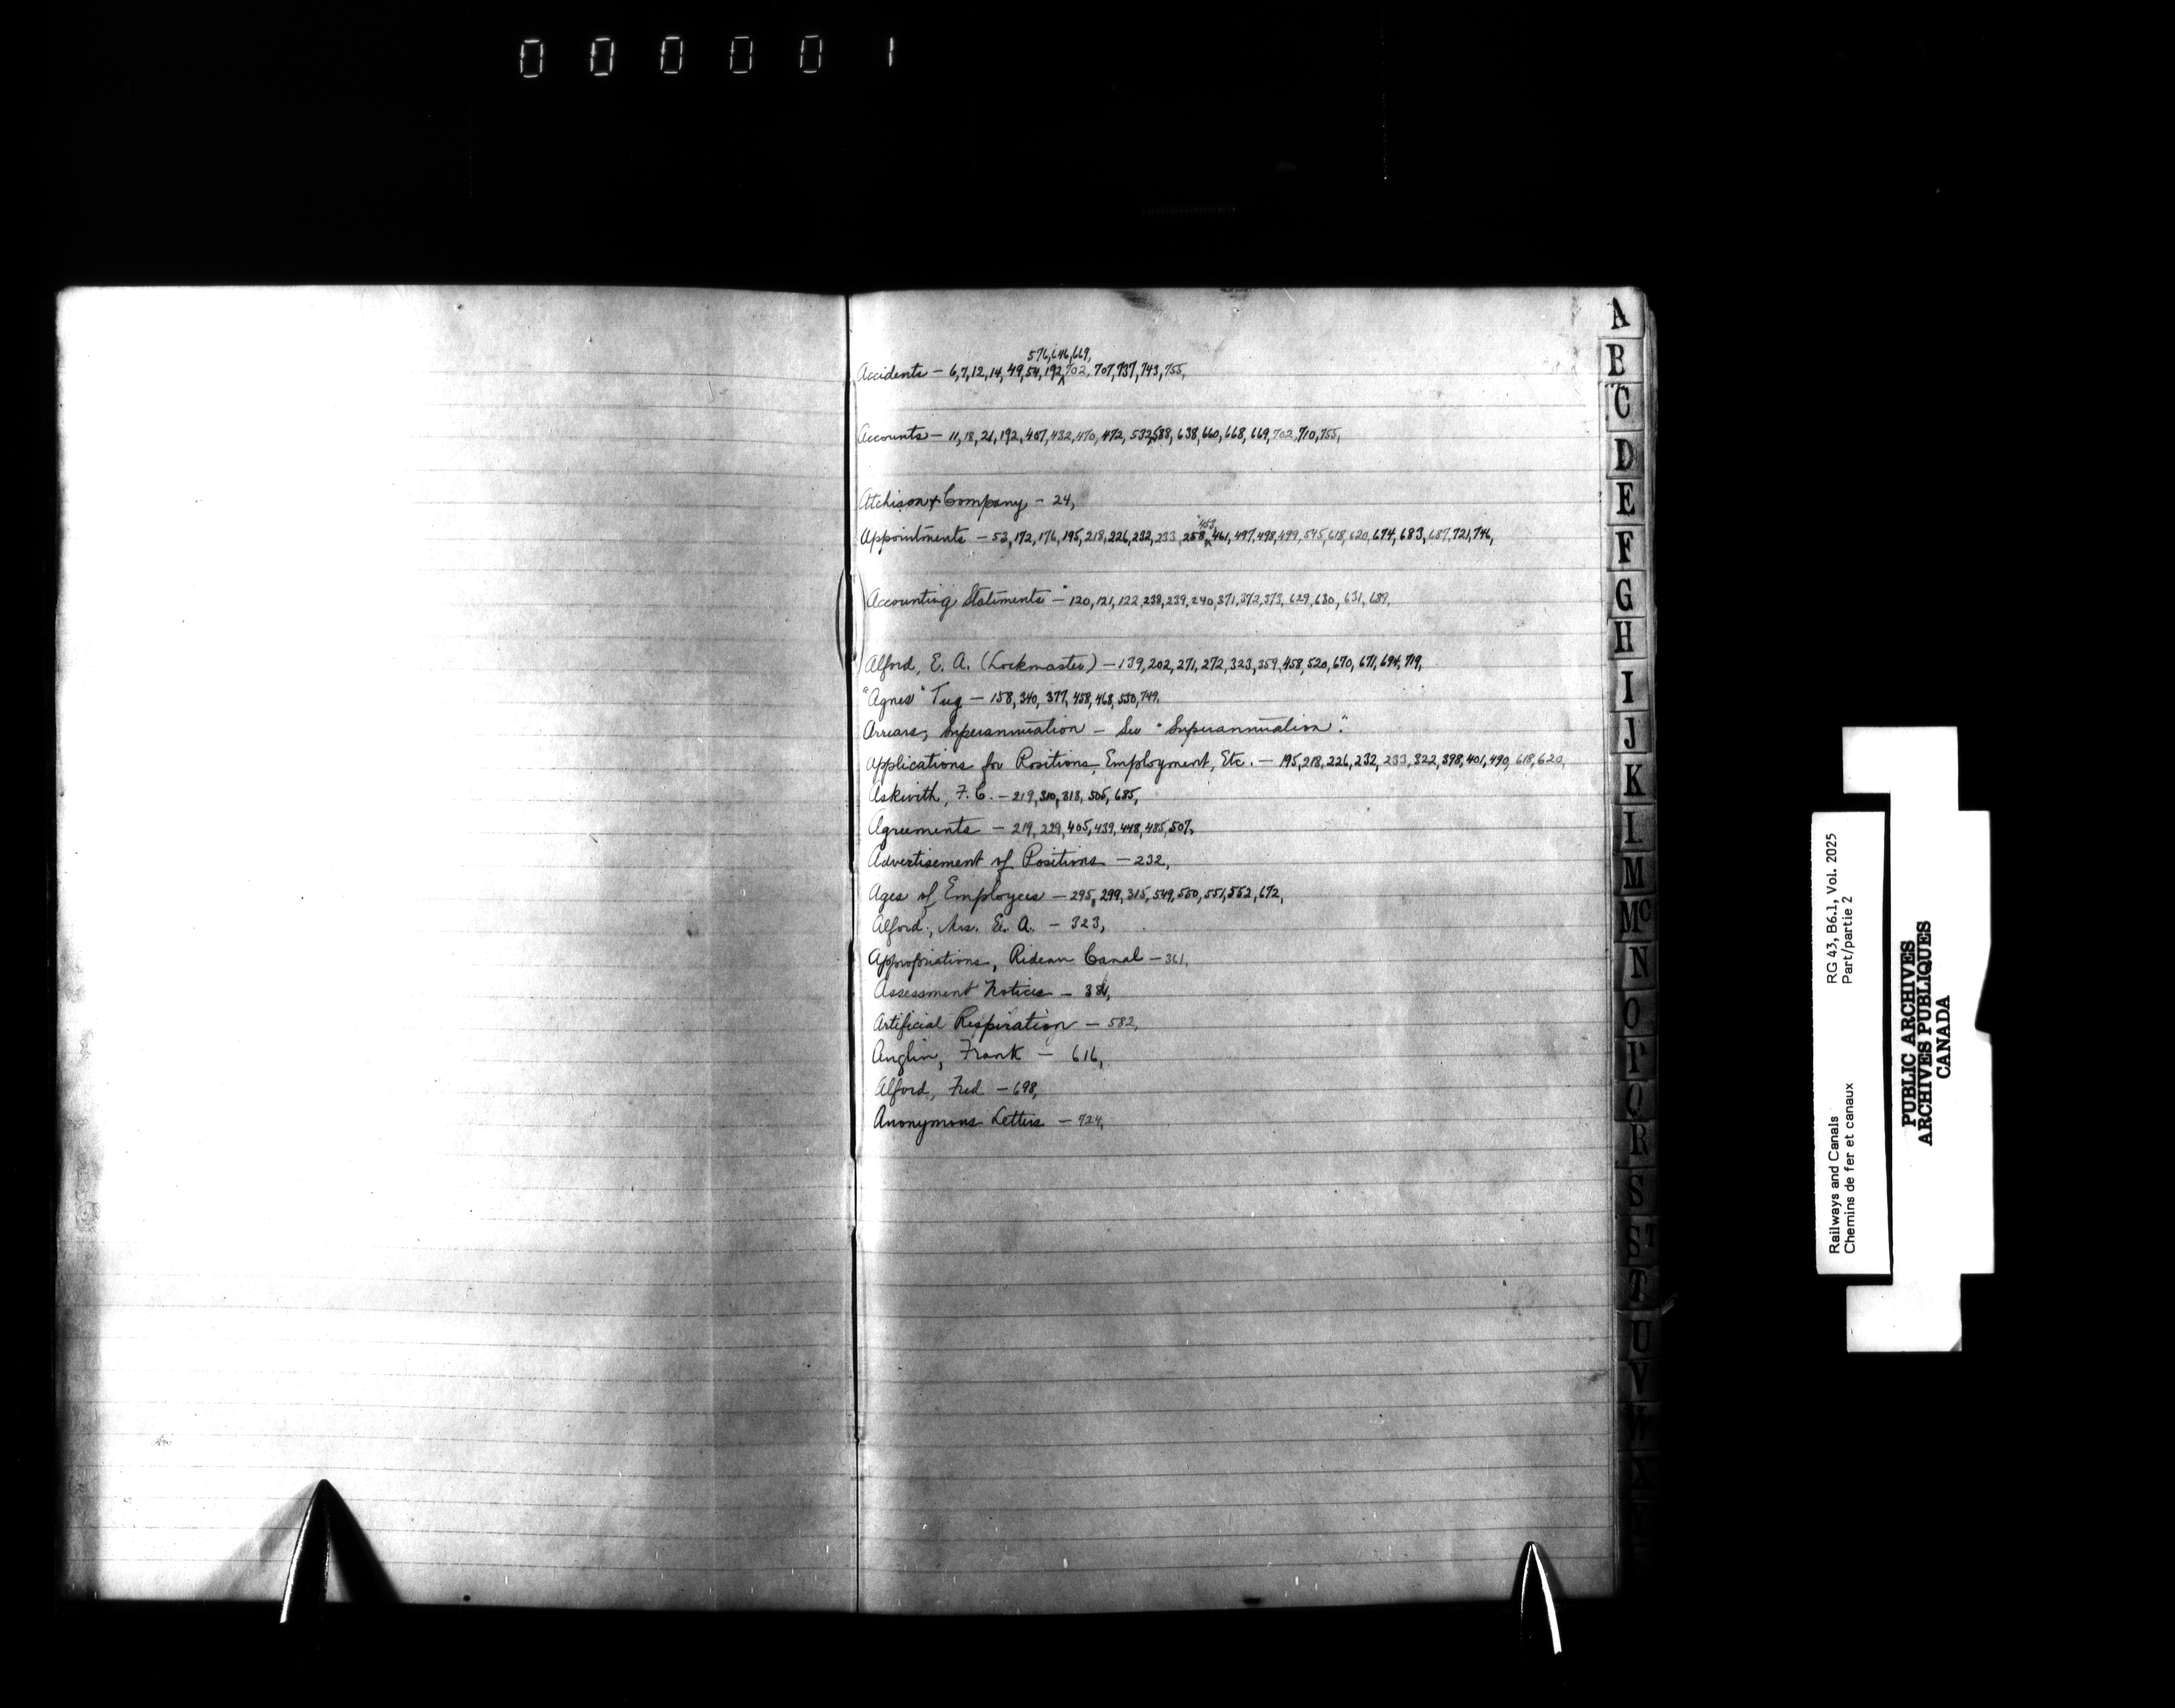 000001
576, 646, 669,
Accidents — 6, 7, 12, 14, 49, 54, 192, 702, 707, 737, 743, 755,
Accounts — 11, 18, 21, 192, 407, 432, 470, 472, 532, 588, 638, 660, 668, 669, 702, 710, 755,
Atchison & Company — 24,
453,
Appointments — 53, 172, 176, 195, 218, 226, 232, 233, 258, 461, 497, 498, 499, 545, 618, 620, 674, 683, 687, 721, 746,
Accounting Statements — 120, 121, 122, 238, 239, 240, 371, 372, 373, 629, 630, 631, 689,
Alford, E. A. (Lockmaster) — 139, 202, 271, 272, 323, 359, 458, 520, 670, 671, 694, 719,
"Agnes" Tug — 158, 340, 377, 458, 468, 550, 749.
Arrears, Superannuation — See "Superannuation".
Applications for Positions, Employment, Etc. — 195, 218, 226, 232, 233, 322, 398, 401, 490, 618, 620,
Askwith, F. C. — 219, 310, 318, 505, 685,
Agreements — 219, 229, 405, 439, 448, 485, 507,
Advertisement of Positions — 232,
Ages of Employees — 295, 299, 315, 549, 550, 551, 552, 672,
Alford, Mrs. E. A. — 323,
Appropriations, Rideau Canal — 361,
Assessment Notices — 384,
Artificial Respiration — 582,
Anglin, Frank — 616,
Alford, Fred — 698,
Anonymous Letters — 724,
A
B
C
D
E
F
G
H
I
J
K
L
M
Mc
N
O
P
Q
R
S
T
U
V
W
X
RG 43, B6.1, Vol. 2025
Part/partie 2
Railways and Canals
Chemins de fer et canaux
PUBLIC ARCHIVES
ARCHIVES PUBLIQUES
CANADA